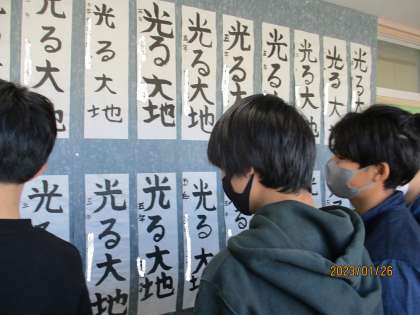 光る大地
光る大地
光る大地
光る大地
光る大
光る大
光る大地
光る大地
光る大地
光る大
光る大地
光る大地
光る大
2023/01/26